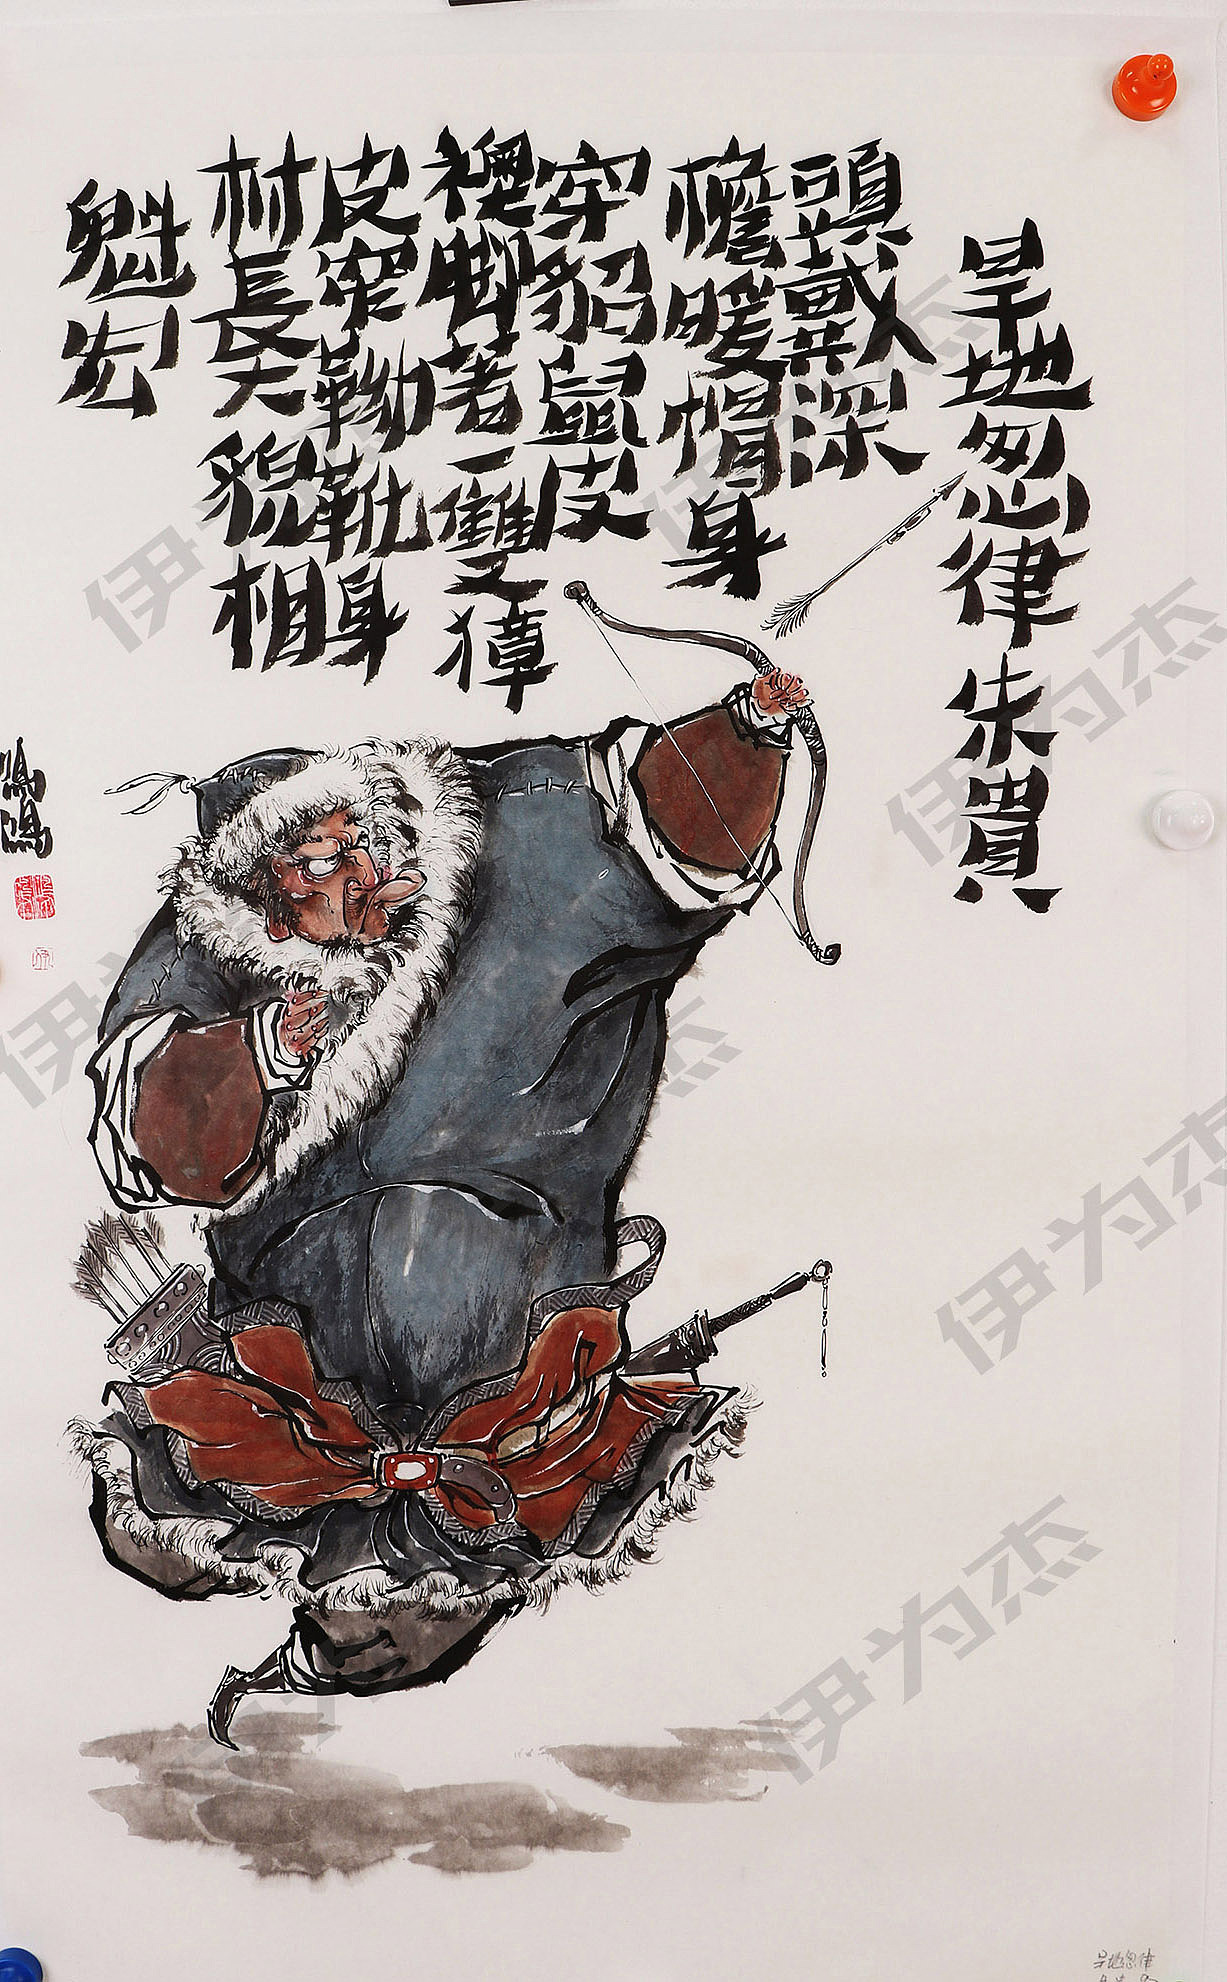 旱地忽律朱貴
頭戴深
檐暖帽身
穿貂鼠皮
襖脚著一雙獐
皮窄靿靴身
材長大貌相
魁宏
旱地忽律
伊为杰
伊为杰
伊为杰
伊为杰
伊为杰
伊为杰